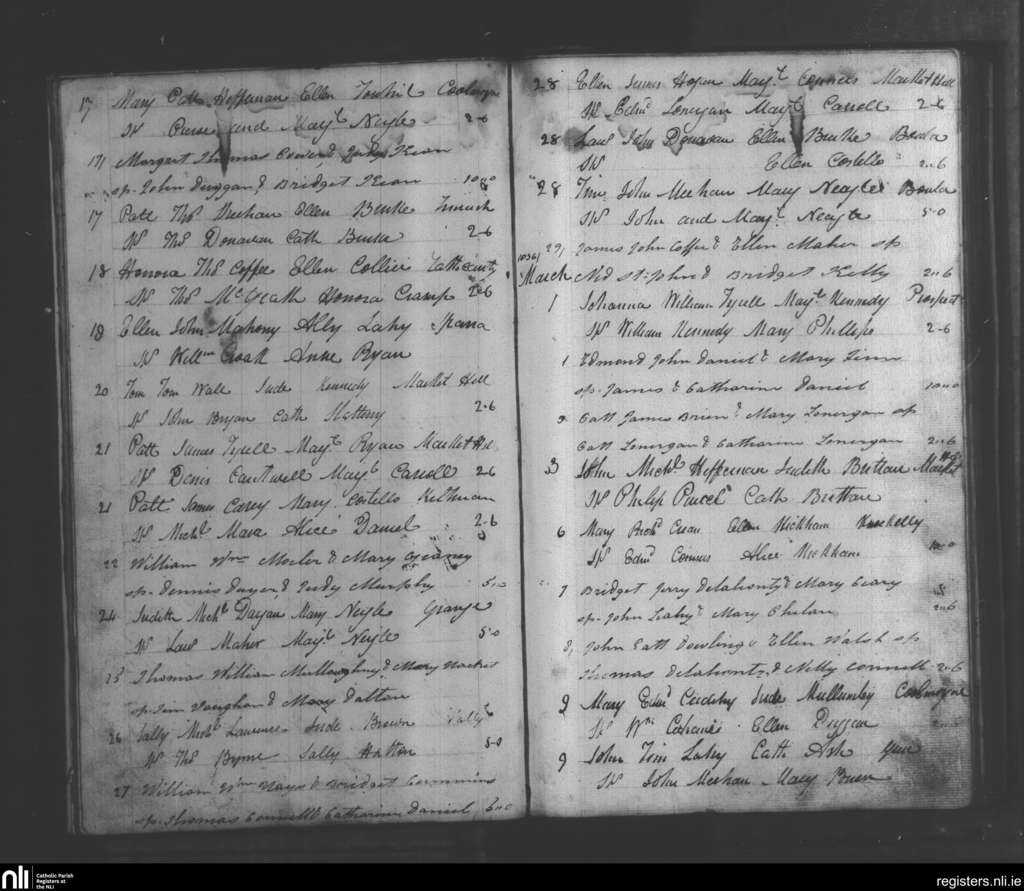 17 Mary Patk Heffernan Ellen Coolmoyne
Sp and Mayt Neagle 2-6
17 Margart Thomas Judy Kean
sp. John Duggan & Bridget Kean 10-0
17 Patt Thos Meehan Ellen Burke
Sp Thos Donavan Cath Burke 2-6
18 Honora Thos Coffee Ellen Collier
Sp Thos McGrath Honora Cramp 2-6
18 Ellen John Mahony Ally Lahy
Sp Willm Croak Anne Ryan
20 Tom Tom Wall Jude Kennedy Market Hill
Sp John Bryan Cath Slattery 2-6
21 Patt James Tyrell Mayt Ryan Market Hill
Sp Denis Cantwell Mayt Carroll 2-6
21 Patt James Carey Mary Costello
Sp Michl Mara Alice Daniel 2-6
22 William Wm Meeler & Mary
sp. Dennis Dwyer & Judy Murphy 5-0
24 Judith Michl Dagan Mary Neagle Grange
Sp Law Maher Mayt Neagle 5-0
25 Thomas William Mullowphny & Mary
sp. Tim Vaughan & Mary Dalton
26 Sally Michl Laurence Jude Brown
Sp Thos Byrne Sally Hatton 5-0
27 William Wm Hays & Bridget Cummins
sp. Thomas Connell & Catharine Daniel
28 Ellen James Hogan Mayt Connors Market Hill
Sp Edmd Lonergan Mayt Carroll 2-6
28 Law John Donavan Ellen Burke
Sp Ellen Costello 2-6
28 Tim John Meehan Mary Neagle
Sp John and Mayt Neagle 5-0
29 James John Coffee & Ellen Maher sp
1836
March Md St. John & Bridget Kelly 2-6
1 Johanna William Tyrell Mayt Kennedy Prospect
Sp William Kennedy Mary Phillips 2-6
1 Edmond John Daniel & Mary Finn
sp. James & Catharine Daniel 10-0
3 Catt James Brien & Mary Lonergan sp
Catt Lonergan & Catharine Lonergan 2-6
3 John Michl Heffernan Judith Buttan
Sp Philip Purcel Cath Buttan
6 Mary Richd Crean Ellen Kickham
Sp Edmd Connors Alice Kickham
7 Bridget Jerry Delahonty & Mary Geary
sp. John Lahy & Mary Phelan 2-6
8 John Patt Dowling & Ellen Walsh sp
Thomas Delahonty & Nelly Connell 2-6
9 Mary Edmd Cuddihy Jude Mullumby Coolmoyne
Sp Wm Ellen Duggan
9 John Tim Lahy Cath Ash
Sp John Meehan Mary Power
nli
Catholic Parish
Registers at
the NLI
registers.nli.ie